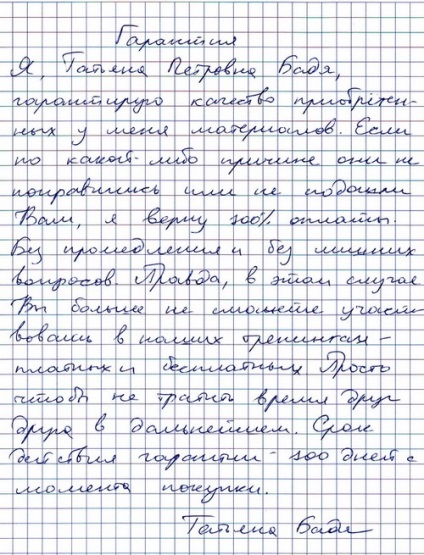 Гарантия
Я, Татьяна Петровна Бадя,
гарантирую качество приобретен-
ных у меня материалов. Если
по какой-либо причине они не
понравились или не подошли
Вам, я верну 100% оплаты.
Без промедления и без лишних
вопросов. Правда, в этом случае
Вы больше не сможете участ
вовать в наших тренингах -
платных и бесплатных. Просто
чтобы не тратить время друг
друга в дальнейшем. Срок
действия гарантии - 100 дней с
момента покупки.
Татьяна Бадя